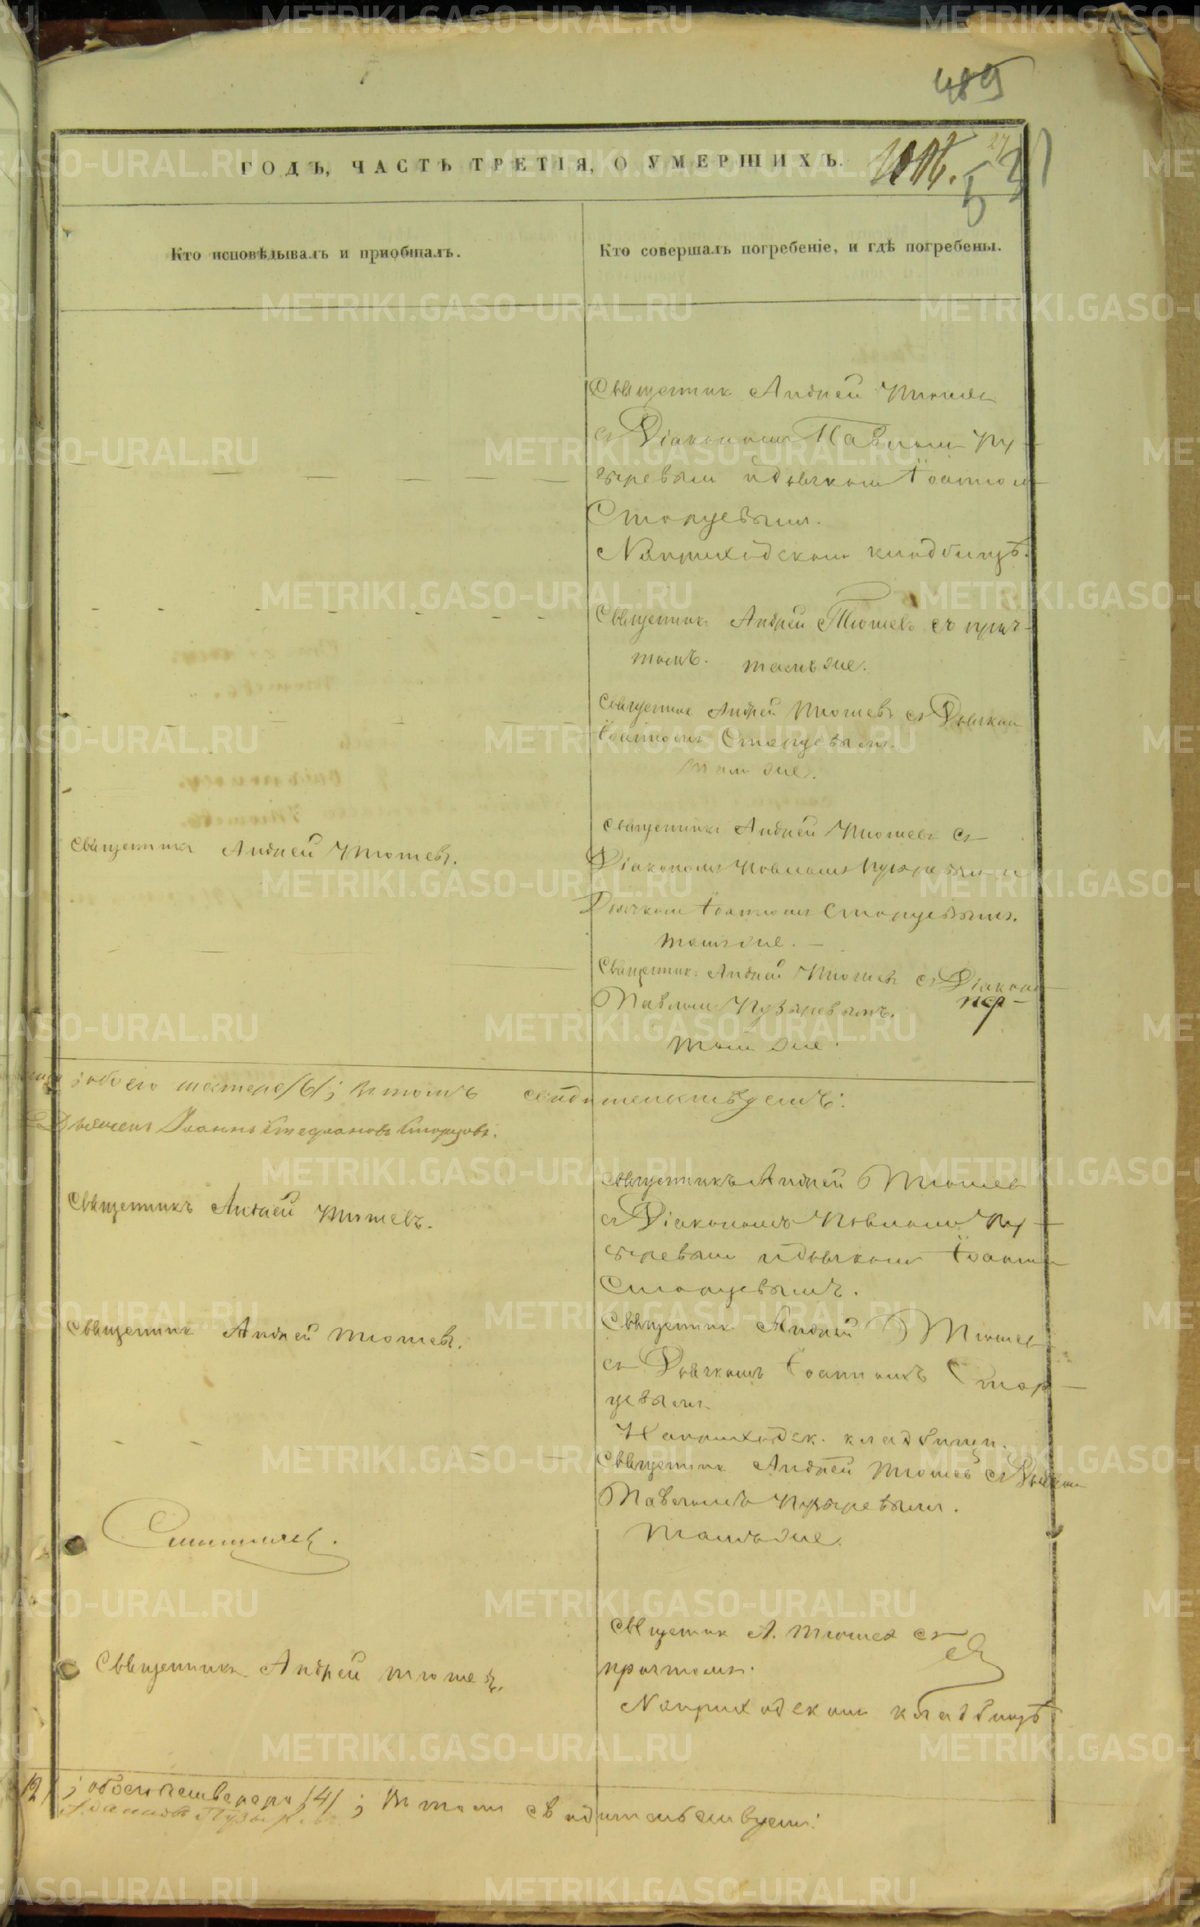 489
ГОДЪ, ЧАСТЬ ТРЕТІЯ, О УМЕРШИХЪ.
Кто исповѣдывалъ и пріобщалъ.
Кто совершалъ погребеніе, и гдѣ погребены.
Священник Андрей Тюшев
съ Діакономъ Павломъ Пу-
зыревым и дьячком Іоанном
Старцевым.
На приходском кладбищѣ.
Священник Андрей Тюшевъ съ прич-
томъ. тамъ же.
Священник Андрей Тюшевъ съ Дьячком
Іоанномъ Старцевым.
там же.
Священникъ Андрей Тюшевъ.
Священникъ Андрей Тюшевъ съ
Діакономъ Павломъ Пузыревым и
Дьячком Іоанном Старцевым.
тамъ же.
Священник Андрей Тюшев съ Діаконом
Павлом Пузыревымъ.
там же.
обоего шестеро /6/; в томъ свидѣтельствуемъ:
Дьячекъ Іоаннъ Стефановъ Старцовъ.
Священникъ Андрей Тюшевъ.
Священникъ Андрей Тюшев
съ Діакономъ Павломъ Пу-
зыревым и дьячком Іоанном
Старцевымъ.
Священник Андрей Тюшевъ.
Священник Андрей Тюшев
съ Дьячкомъ Іоанномъ Стар-
цевым.
На приходск. кладбищѣ.
Священник Андрей Тюшев съ
Павломъ Пузыревым.
тамъ же.
Священникъ Андрей Тюшевъ.
Священник А. Тюшев съ
причтомъ.
На приходском кладбищѣ
; обоего четверо /4/; Въ том свидѣтельствуем:
METRIKI.GASO-URAL.RU